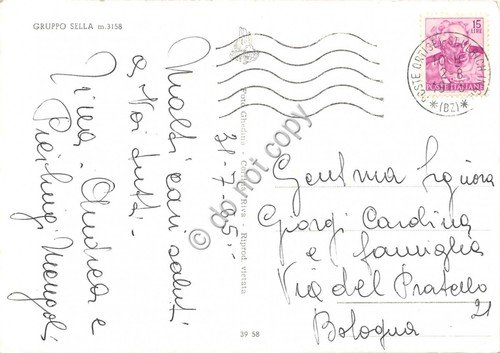 GRUPPO SELLA m. 3158
31-7-65.
Molti cari saluti
a Voi tutti.
Andrea e
Pierluigi
Foto Ghedina - Riprod. vietata
39 58
15
LIRE
POSTE ITALIANE
(BZ)
Gent.ma Signora
Giorgi Cardina
e famiglia
Via del Pratello
21
Bologna
do not copy